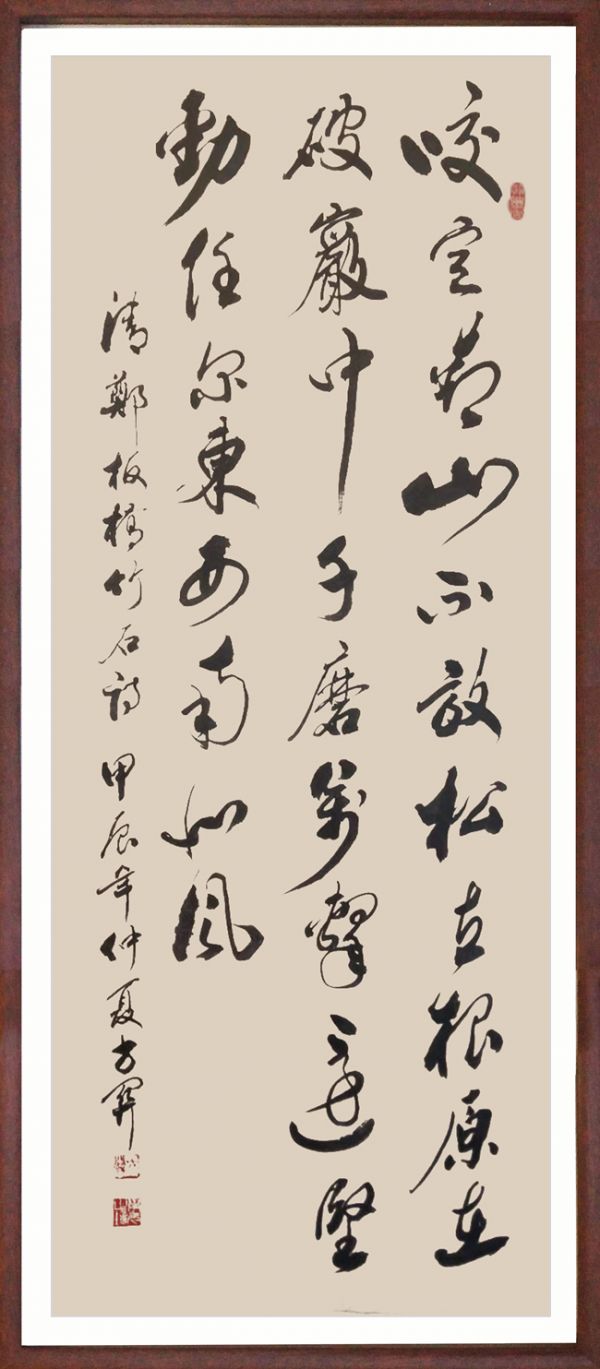 咬定青山不放松立根原在
破巖中千磨萬擊還堅
勁任尔東西南北風
清鄭板橋竹石詩甲辰年仲夏方